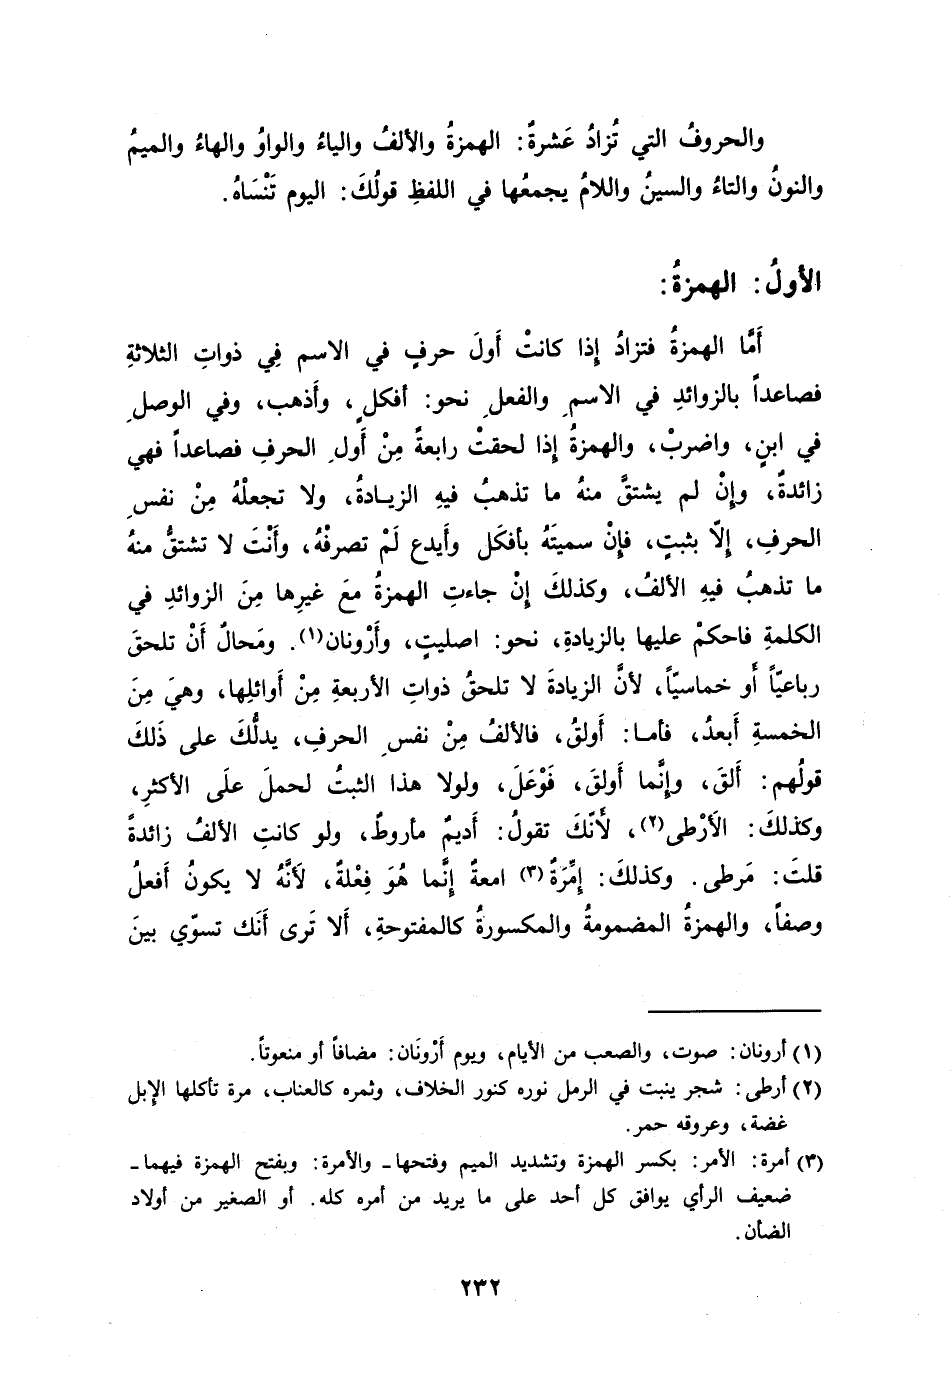 والحروفُ التي تُزادُ عَشرةٌ: الهمزةُ والألفُ والياءُ والواوُ والهاءُ والميمُ
والنونُ والتاءُ والسينُ واللامُ يجمعُها في اللفظِ قولُكَ: اليوم تَنْسَاهُ.
الأولُ: الهمزةُ:
أَمَّا الهمزةُ فتزادُ إِذا كانتْ أَولَ حرفٍ في الاسم فِي ذواتِ الثلاثةِ
فصاعداً بالزوائدِ في الاسمِ والفعلِ نحو: أفكلٍ، وأَذهب، وفي الوصلِ
في ابنٍ، واضربْ، والهمزةُ إِذا لحقتْ رابعةً مِنْ أَولِ الحرفِ فصاعداً فهي
زائدةٌ، وإِنْ لم يشتقَّ منهُ ما تذهبُ فيهِ الزيادةُ، ولا تجعلْهُ مِنْ نفسِ
الحرفِ، إِلّا بثبتٍ، فإِنْ سميتَهُ بأفكَل وأَيدع لَمْ تصرفْهُ، وأَنْتَ لا تشتقُّ منهُ
ما تذهبُ فيهِ الألفُ، وكذلكَ إِنْ جاءتِ الهمزةُ معَ غيرِها مِنَ الزوائدِ في
الكلمةِ فاحكمْ عليها بالزيادةِ، نحو: اصليتٍ، وأَرْونان(١). ومَحالٌ أَنْ تلحقَ
رباعيّاً أَو خماسيّاً، لأنَّ الزيادةَ لا تلحقُ ذواتِ الأربعةِ مِنْ أَوائلِها، وهيَ مِنَ
الخمسةِ أَبعدُ، فأما: أَولقُ، فالألفُ مِنْ نفسِ الحرفِ، يدلُّكَ على ذَلكَ
قولُهم: أَلقَ، وإِنَّما أَولقَ، فَوْعَلَ، ولولا هذا الثبتُ لحملَ علَى الأكثرِ،
وكذلكَ: الأَرْطى(٢)، لأَنّكَ تقولُ: أَديمٌ مأروطٌ، ولو كانتِ الألفُ زائدةً
قلتَ: مَرطى. وكذلكَ: إِمَّرَةٌ(٣) امعةٌ إِنَّما هُوَ فِعْلةٌ، لأَنَّهُ لا يكونُ أَفعلُ
وصفاً، والهمزةُ المضمومةُ والمكسورةُ كالمفتوحةِ، أَلا تَرى أَنَك تسوّي بينَ
(١) أرونان: صوت، والصعب من الأيام، ويوم أَرْونَان: مضافاً أو منعوتاً.
(٢) أرطى: شجر ينبت في الرمل نوره كنور الخلاف، وثمره كالعناب، مرة تأكلها الإبل
غضة، وعروقه حمر.
(٣) أمرة: الأمر: بكسر الهمزة وتشديد الميم وفتحها- والأمرة: وبفتح الهمزة فيهما-
ضعيف الرأي يوافق كل أحد على ما يريد من أمره كله. أو الصغير من أولاد
الضأن.
٢٣٢